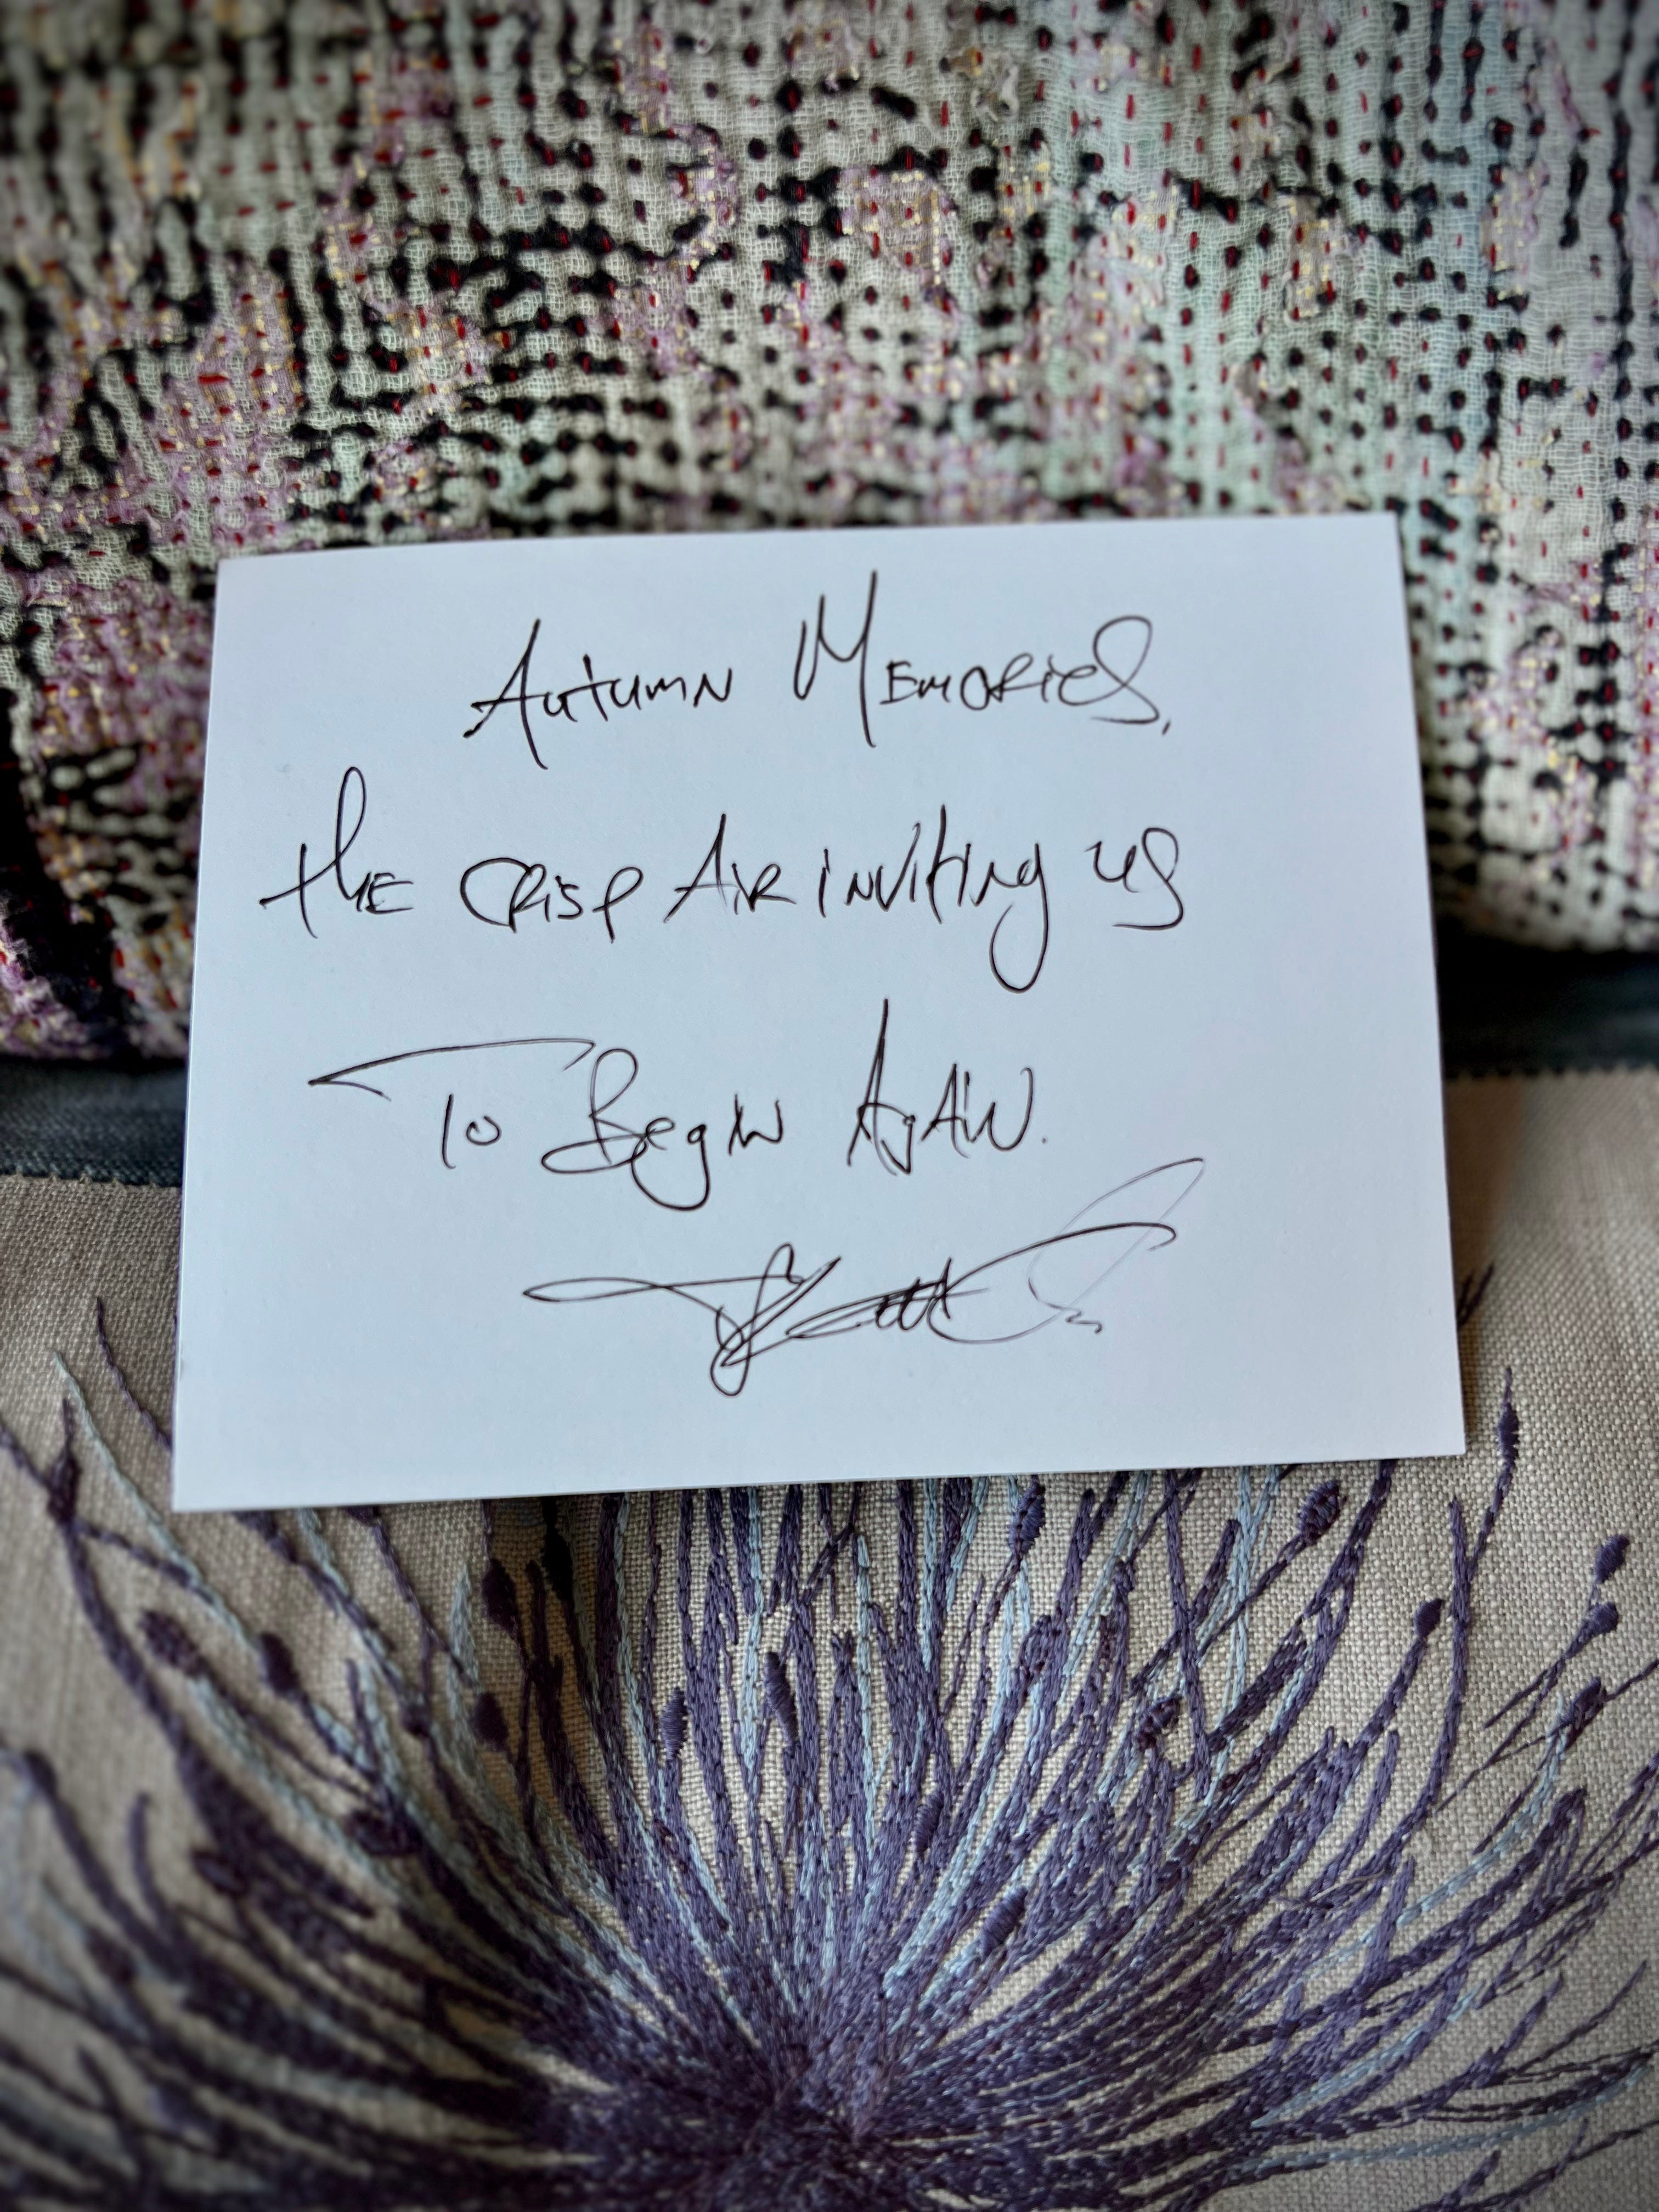 Autumn Memories,
the crisp Air inviting us
To Begin Again.